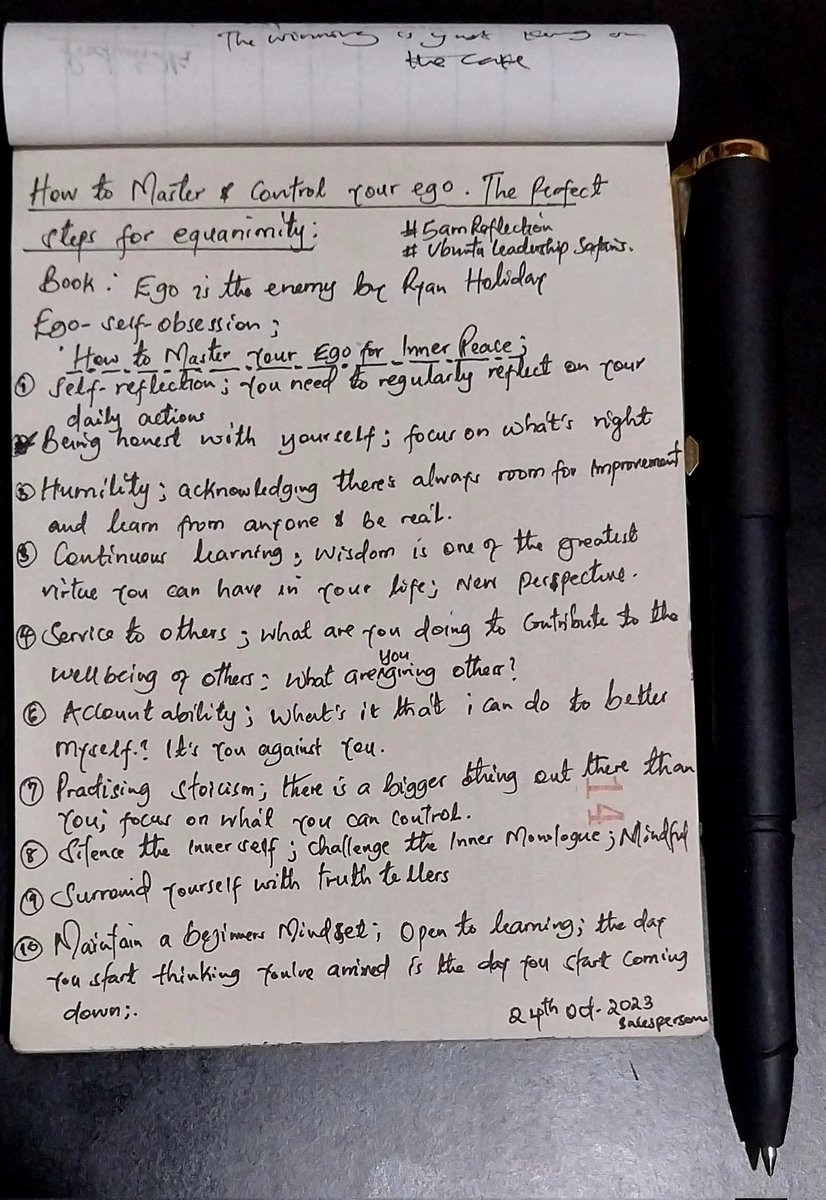 The winning is y not on
the cake
How to Master & Control your ego. The Perfect
steps for equanimity:
#5amReflection
# Ubuntu Leadership Safaris.
Book: Ego is the enemy by Ryan Holiday
Ego- self-obsession;
How to Master Your Ego for Inner Peace;
① Self-reflection; You need to regularly reflect on your
daily actions
Being honest with yourself; focus on what's right
③ Humility; acknowledging there's always room for improvement
and learn from anyone & be real.
⑤ Continuous learning; Wisdom is one of the greatest
virtue you can have in your life; New Perspective.
④ Service to others; what are you doing to Contribute to the
wellbeing of others: what are you giving others?
⑥ Accountability; What's it that i can do to better
myself.? It's You against You.
⑦ Practising Stoicism; there is a bigger thing out there than
You; focus on what you can control.
14
⑧ Silence the Inner self; challenge the Inner Monologue; Mindful
⑨ Surround yourself with truth tellers
⑩ Maintain a beginners Mindset; Open to learning; the day
you start thinking you've arrived is the day you start coming
down;.
24th Oct-2023
Salesperson